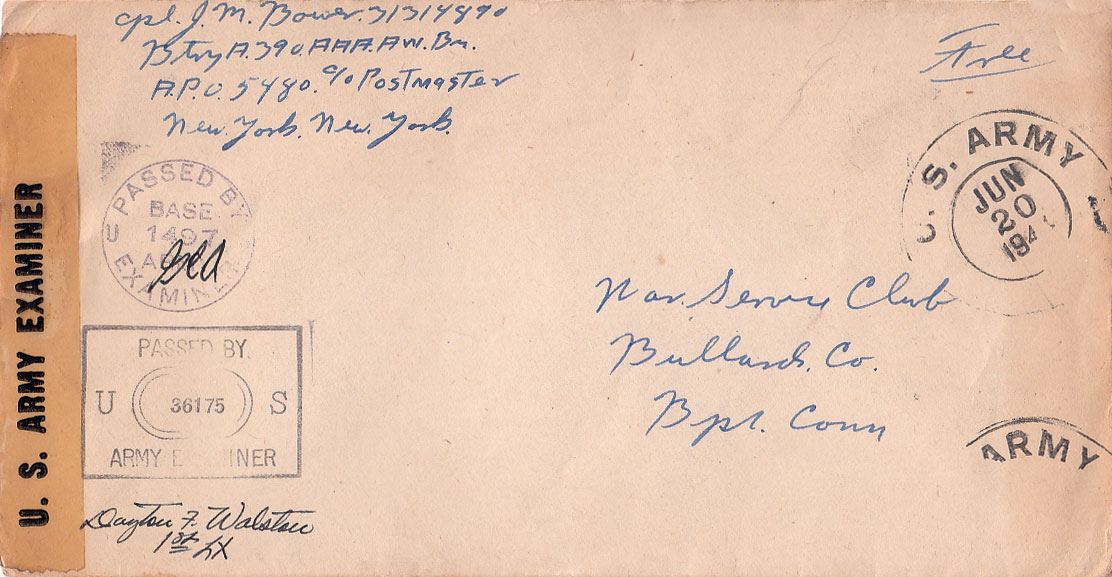 Cpl. J. M. Bower. 31314890
Btry A. 390. AAA. AW. Bn.
A.P.O. 5480. c/o Postmaster
New. York. New. York.
Free
U. S. ARMY
JUN
20
194
PASSED BY
BASE
1497
U
EXAMINER
PASSED BY
U 36175 S
ARMY EXAMINER
U. S. ARMY EXAMINER
War. Service Club
Bullards. Co.
Bpt. Conn
ARMY
Dayton F. Walston
1st Lt